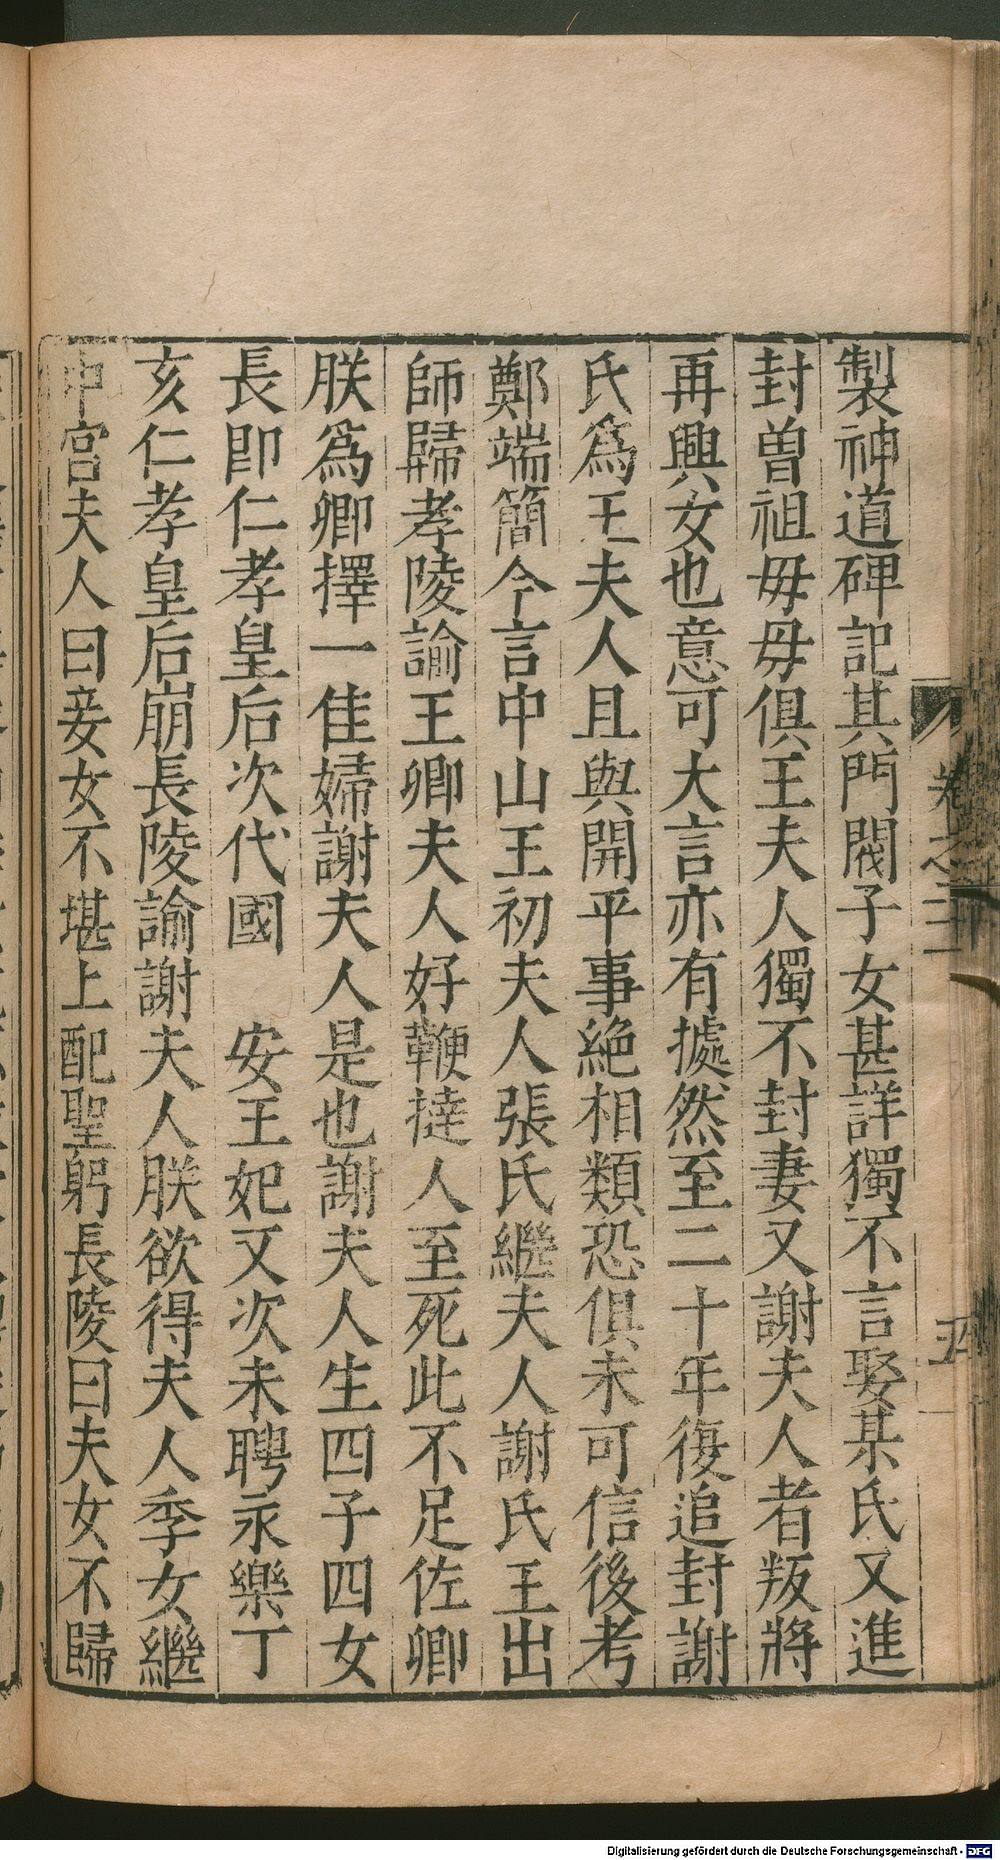 製神道碑記其門閥子女甚詳獨不言娶某氏又進
封曾祖毋毋俱王夫人獨不封妻又謝夫人者叛將
再興女也意可大言亦有據然至二十年復追封謝
氏爲王夫人且與開平事絶相類恐俱未可信後考
鄭端簡今言中山王初夫人張氏繼夫人謝氏王出
師歸孝陵諭王卿夫人好鞭撻人至死此不足佐卿
朕爲卿擇一佳婦謝夫人是也謝夫人生四子四女
長即仁孝皇后次代國　安王妃又次未聘永樂丁
亥仁孝皇后崩長陵諭謝夫人朕欲得夫人季女繼
中宮夫人曰妾女不堪上配聖躬長陵曰夫女不歸
卷之三
Digitalisierung gefördert durch die Deutsche Forschungsgemeinschaft - DFG